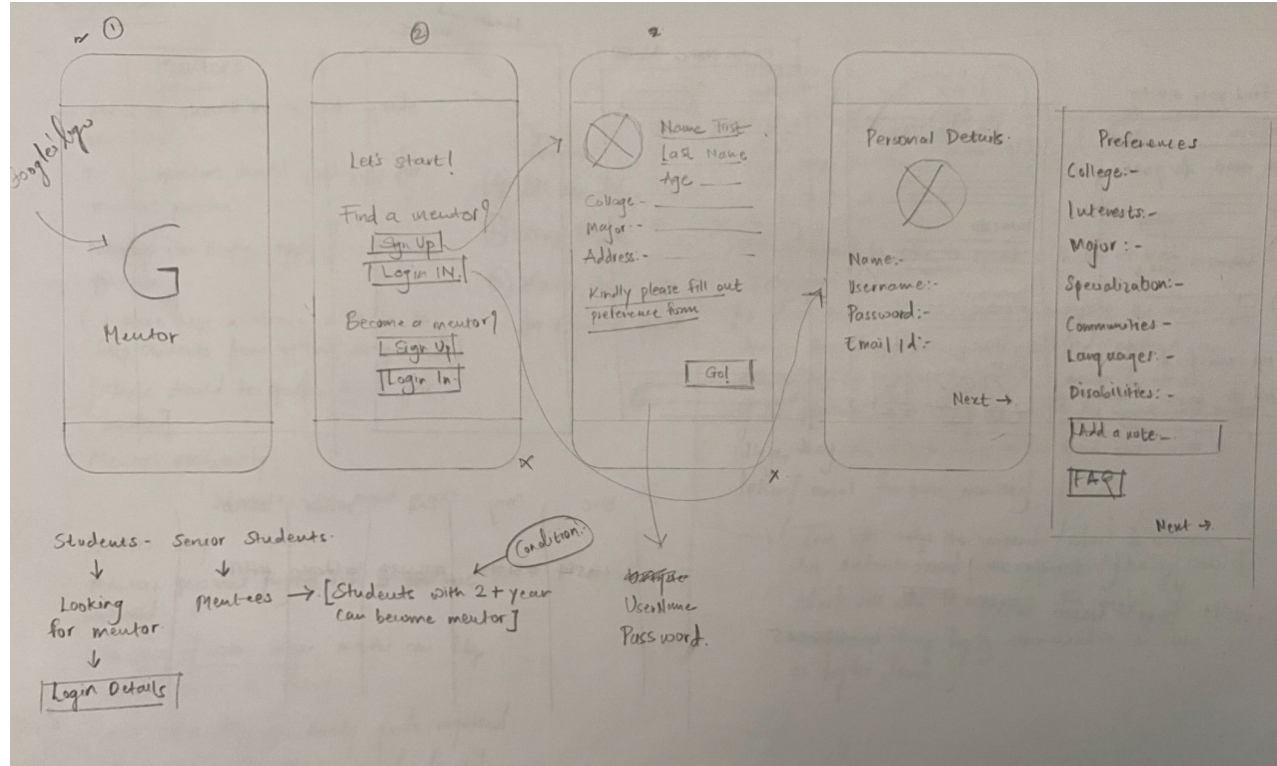 ①
②
2
Google's logo
G
Mentor
Let's start!
Find a mentor?
Sign Up
Login IN.
Become a mentor?
Sign Up
Login In.
Name First
Last Name
Age
College -
Major:-
Address:-
Kindly please fill out
preference form
Go!
UserName
Password.
Personal Details.
Name:-
Username:-
Password:-
Email Id:-
Next →
Preferences
College:-
Interests:-
Major :-
Specialization:-
Communities -
Languages: -
Disabilities: -
Add a note -
FAQ
Next →
Students - Senior Students.
Looking
for mentor
Login Details
Mentees → [Students with 2+ year
can become mentor]
Condition: